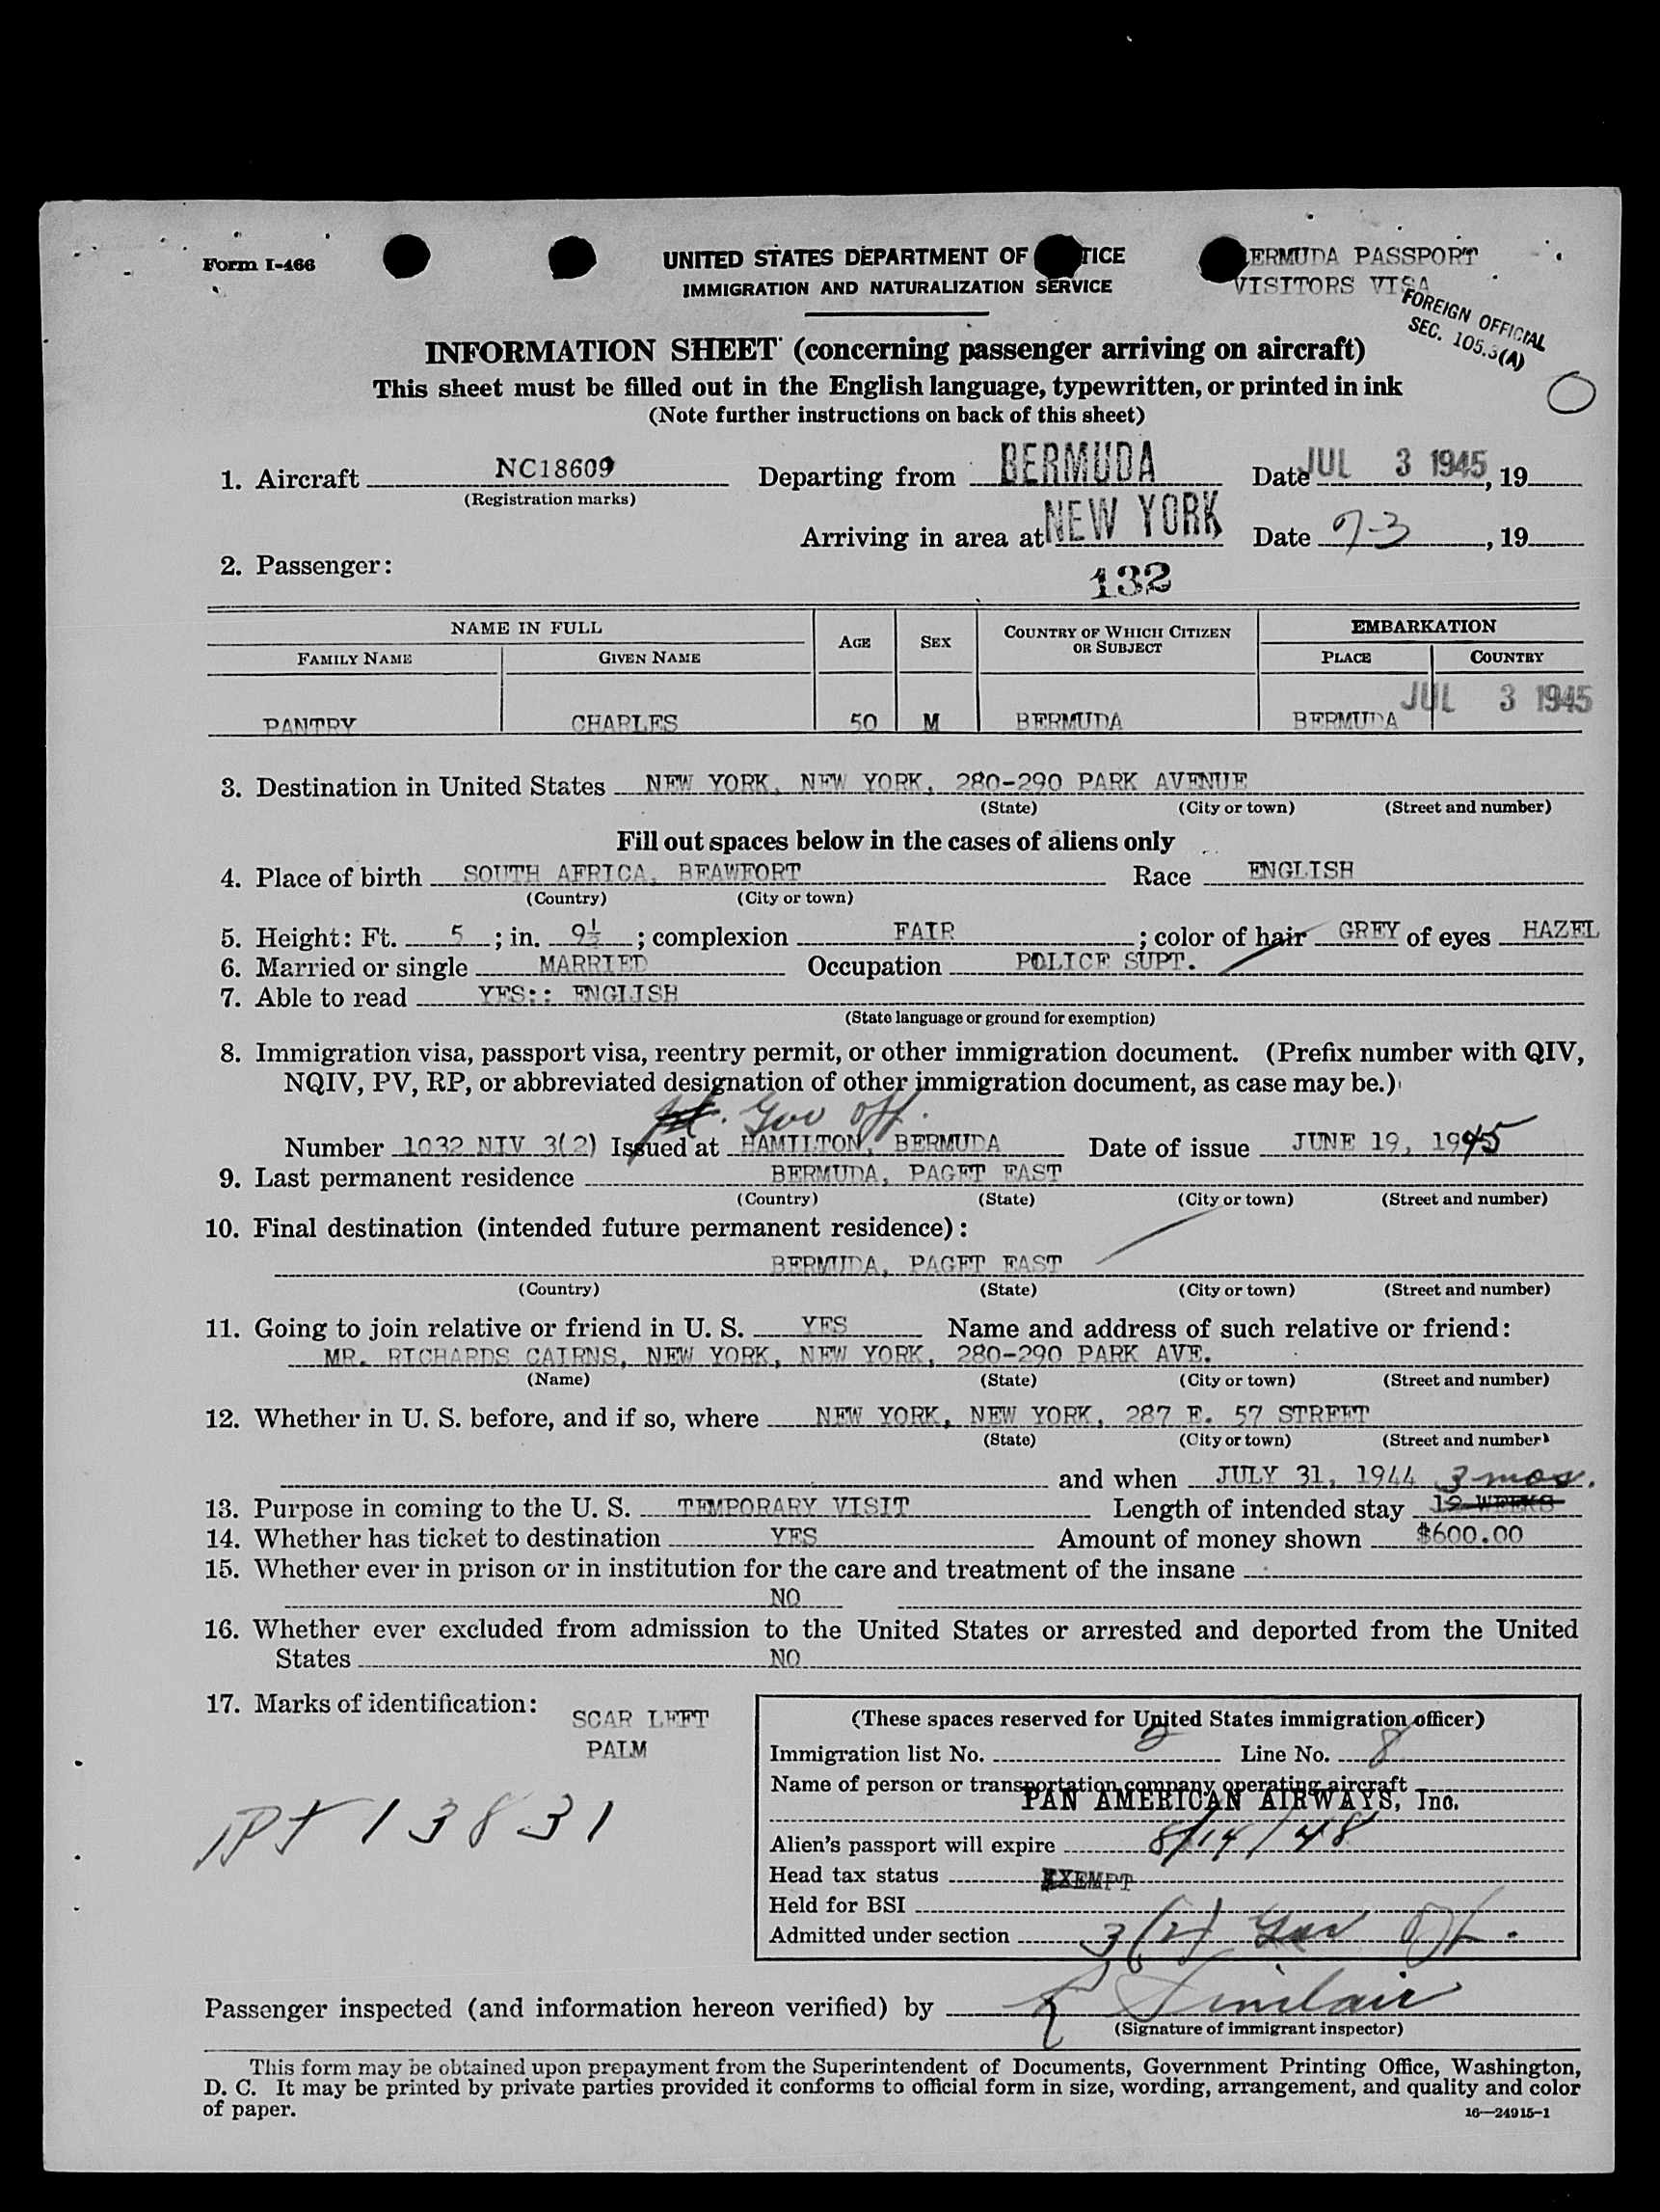 Form I-466
UNITED STATES DEPARTMENT OF TICE
IMMIGRATION AND NATURALIZATION SERVICE
ERMUDA PASSPORT
VISITORS VISA
FOREIGN OFFICIAL
SEC. 105.3(A)
INFORMATION SHEET (concerning passenger arriving on aircraft)
This sheet must be filled out in the English language, typewritten, or printed in ink
(Note further instructions on back of this sheet)
1. Aircraft NC18609 Departing from BERMUDA Date JUL 3 1945, 19
(Registration marks)
Arriving in area at NEW YORK Date 7-3, 19
2. Passenger:
132
NAME IN FULL AGE SEX COUNTRY OF WHICH CITIZEN OR SUBJECT EMBARKATION
FAMILY NAME GIVEN NAME PLACE COUNTRY
JUL 3 1945
PANTRY CHARLES 50 M BERMUDA BERMUDA
3. Destination in United States NEW YORK, NEW YORK, 280-290 PARK AVENUE
(State) (City or town) (Street and number)
Fill out spaces below in the cases of aliens only
4. Place of birth SOUTH AFRICA, BEAWFORT Race ENGLISH
(Country) (City or town)
5. Height: Ft. 5; in. 9½; complexion FAIR; color of hair GREY of eyes HAZEL
6. Married or single MARRIED Occupation POLICE SUPT.
7. Able to read YES:: ENGLISH
(State language or ground for exemption)
8. Immigration visa, passport visa, reentry permit, or other immigration document. (Prefix number with QIV,
NQIV, PV, RP, or abbreviated designation of other immigration document, as case may be.)
Gov Off.
Number 1032 NIV 3(2) Issued at HAMILTON, BERMUDA Date of issue JUNE 19, 1945
9. Last permanent residence BERMUDA, PAGET EAST
(Country) (State) (City or town) (Street and number)
10. Final destination (intended future permanent residence):
BERMUDA, PAGET EAST
(Country) (State) (City or town) (Street and number)
11. Going to join relative or friend in U. S. YES Name and address of such relative or friend:
MR. RICHARDS CAIRNS, NEW YORK, NEW YORK, 280-290 PARK AVE.
(Name) (State) (City or town) (Street and number)
12. Whether in U. S. before, and if so, where NEW YORK, NEW YORK, 287 E. 57 STREET
(State) (City or town) (Street and number)
and when JULY 31, 1944 3 mos.
13. Purpose in coming to the U. S. TEMPORARY VISIT Length of intended stay 12 WEEKS
14. Whether has ticket to destination YES Amount of money shown $600.00
15. Whether ever in prison or in institution for the care and treatment of the insane
NO
16. Whether ever excluded from admission to the United States or arrested and deported from the United
States NO
17. Marks of identification: SCAR LEFT
PALM
13831
(These spaces reserved for United States immigration officer)
Immigration list No. 2 Line No. 8
Name of person or transportation company operating aircraft
PAN AMERICAN AIRWAYS, Inc.
Alien's passport will expire 8/14/48
Head tax status EXEMPT
Held for BSI
Admitted under section 3(2) Gov Of.
Passenger inspected (and information hereon verified) by Sinclair
(Signature of immigrant inspector)
This form may be obtained upon prepayment from the Superintendent of Documents, Government Printing Office, Washington,
D. C. It may be printed by private parties provided it conforms to official form in size, wording, arrangement, and quality and color
of paper.
16—24915-1